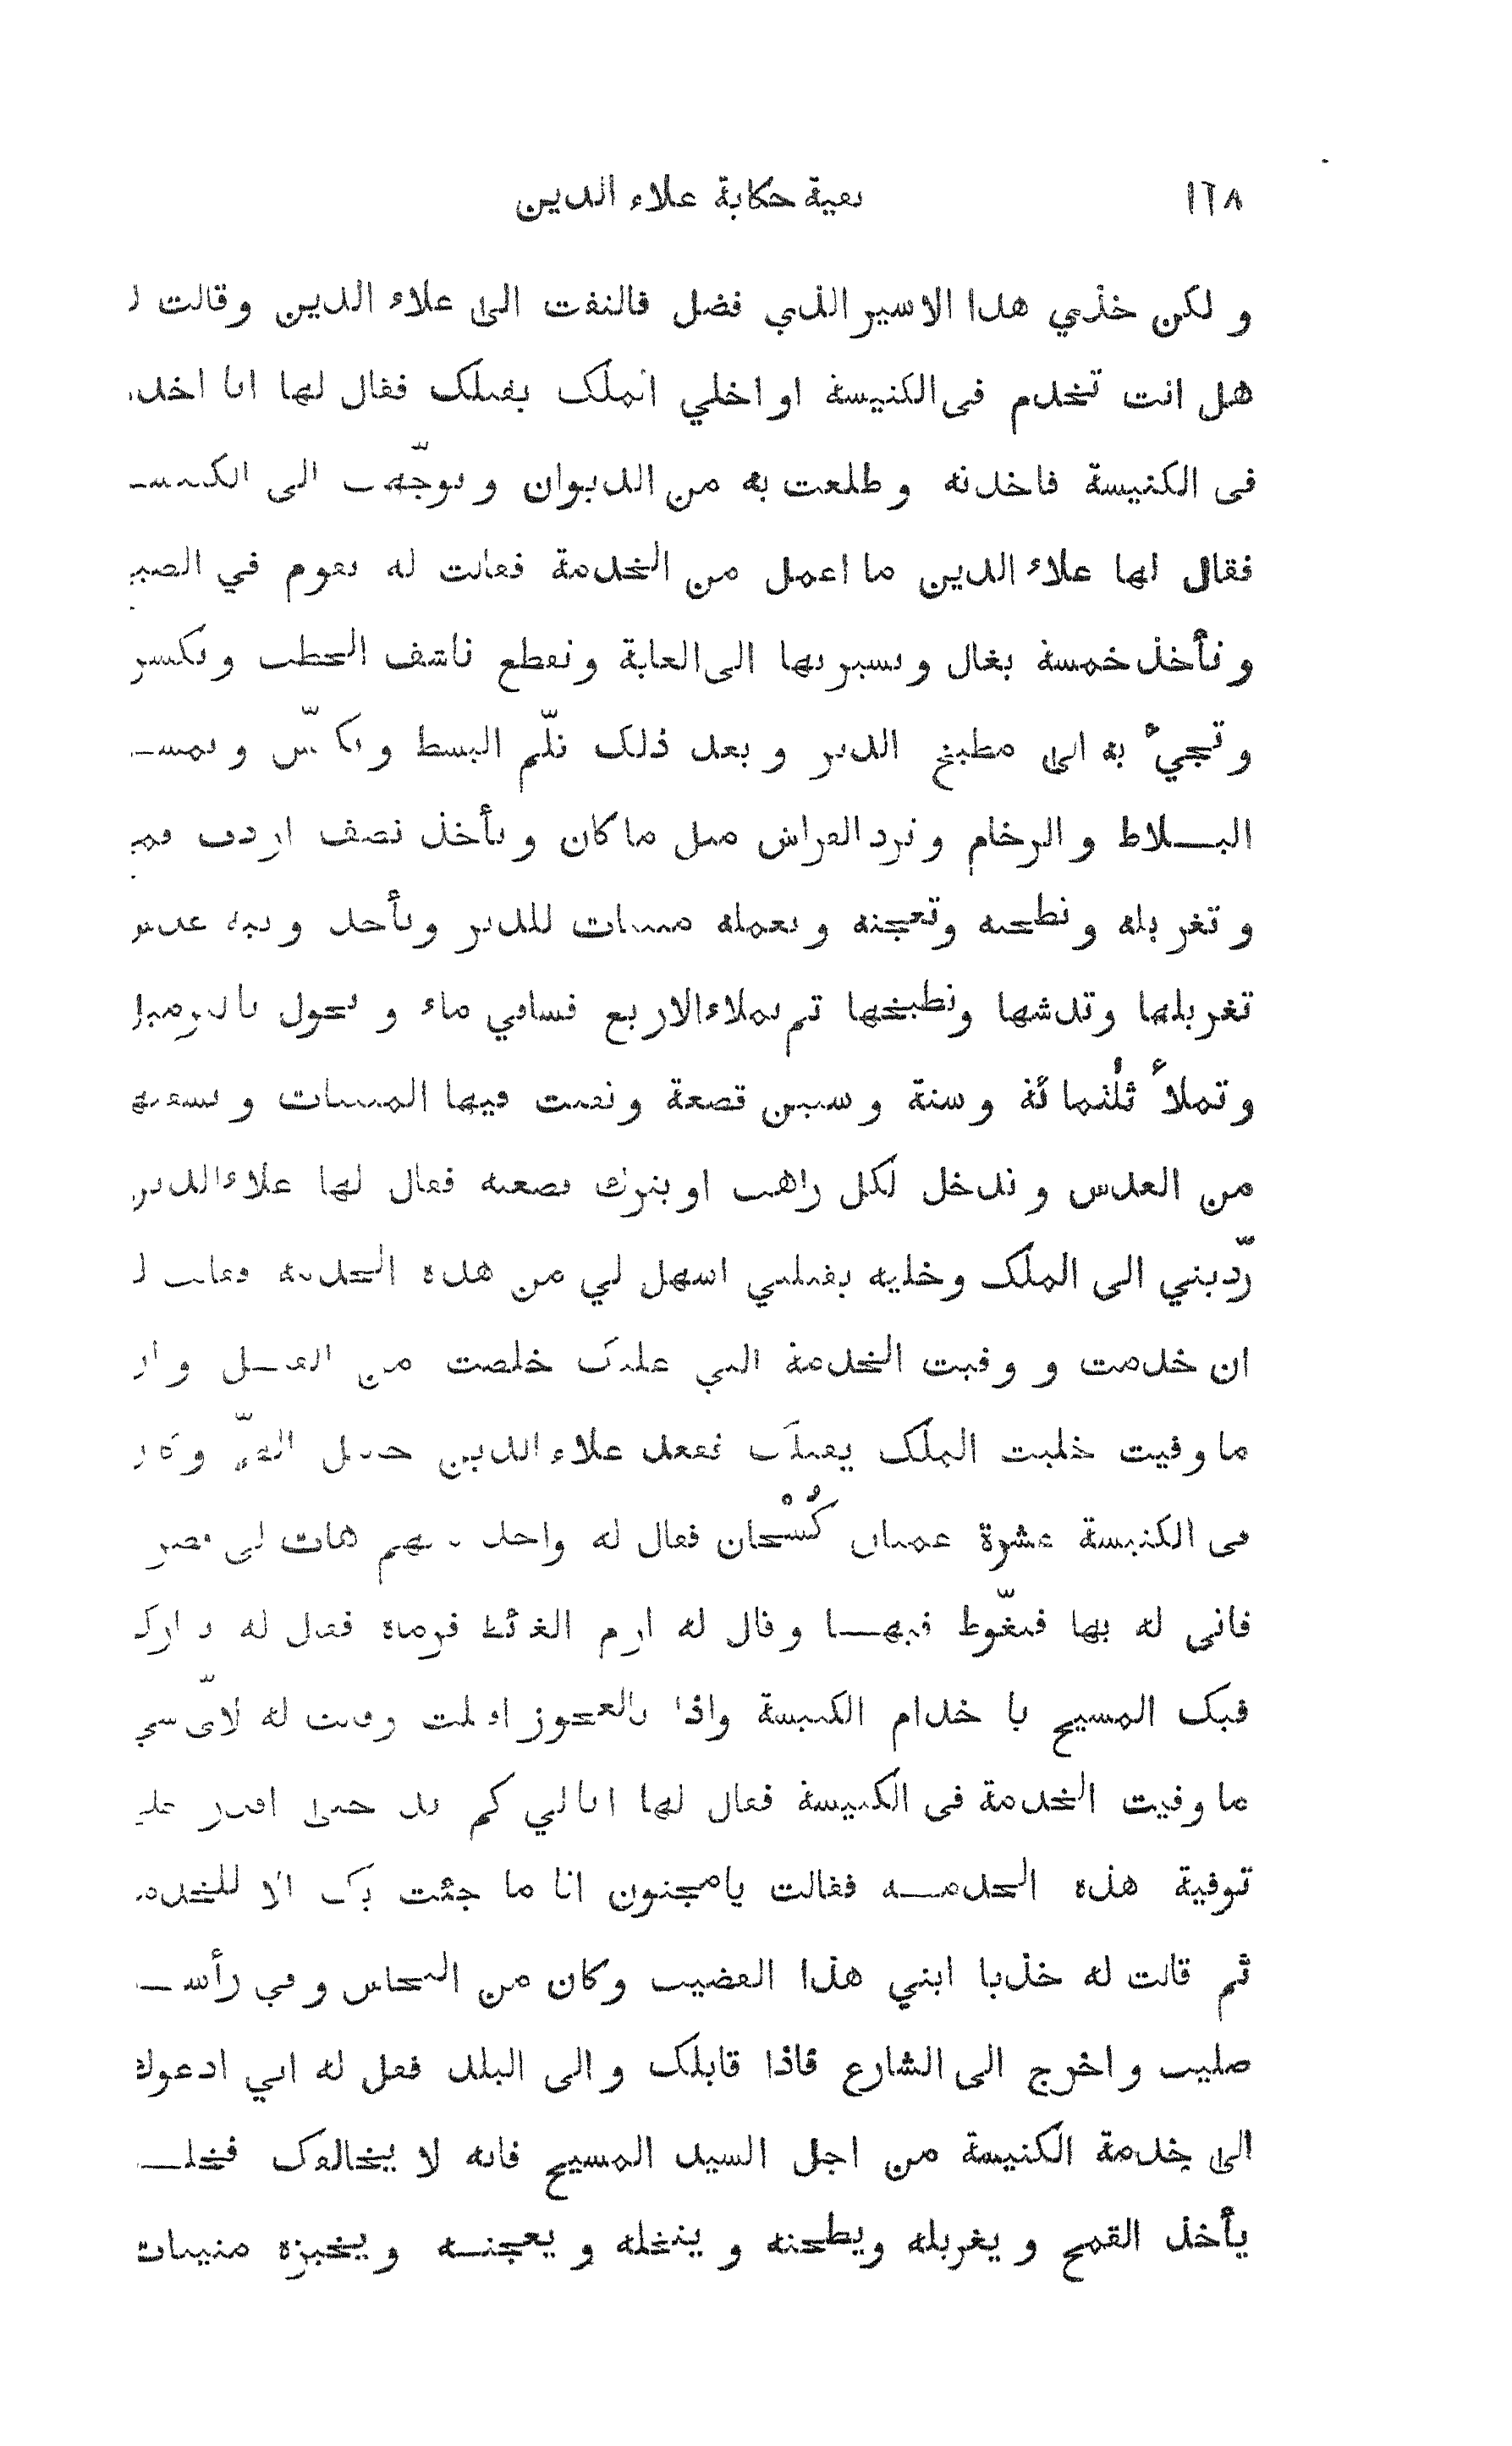 ١٢٨ بقية حكاية علاء الدين
و لكن خذي هذا الاسير الذي فضل فالتفت الى علاء الدين وقالت
هل انت تخدم فى الكنيسة او اخلي الملك يقتلك فقال لها انا
فى الكنيسة فاخذته وطلعت به من الديوان وتوجّهت الى
فقال لها علاء الدين ما اعمل من الخدمة فقالت له تقوم في
وتأخذ خمسة بغال وتسير بها الى الغابة وتقطع ناشف الحطب وتكسر
وتجيء به الى مطبخ الدير وبعد ذلك تلّم البسط و و
البلاط والرخام وترد الفراش مثل ما كان وتأخذ نصف اردب
وتغربله وتطحنه وتعجنه وتعمله منينات للدير وتأخذ
تغربلها وتدشها وتطبخها ثم تملاء الاربع فساقي ماء و تحول
وتملأ ثلُثمائة وستة وستين قصعة وتفتت فيها المنينات
من العدس وتدخل لكل راهب او بترك قصعته فقال لها علاء الدين
ردّيني الى الملك وخليه يقتلني اسهل لي من هذه الخدمة
ان خدمت و وفيت الخدمة التي عليك خلصت من القتل
ما وفيت خليت الملك يقتلك فقعد علاء الدين
فى الكنيسة عشرة عميان كُسْحان فقال له واحد منهم هات لى
فاتى له بها فتغّوط فيها وقال له ارم الغائط فرماه فقال له
فيك المسيح يا خدام الكنيسة واذا بالعجوز اقبلت وقالت له
ما وفيت الخدمة فى الكنيسة فقال لها انا لي كم يد حتى اقدر
توفية هذه الخدمة فقالت يا مجنون انا ما جئت بك الا
ثم قالت له خذ يا ابني هذا القضيب وكان من النحاس وفي
صليب واخرج الى الشارع فاذا قابلك والى البلد فقل له اني ادعوك
الى خدمة الكنيسة من اجل السيد المسيح فانه لا يخالفك
يأخذ القمح ويغربله ويطحنه وينخله ويعجنه ويخبزه منينات